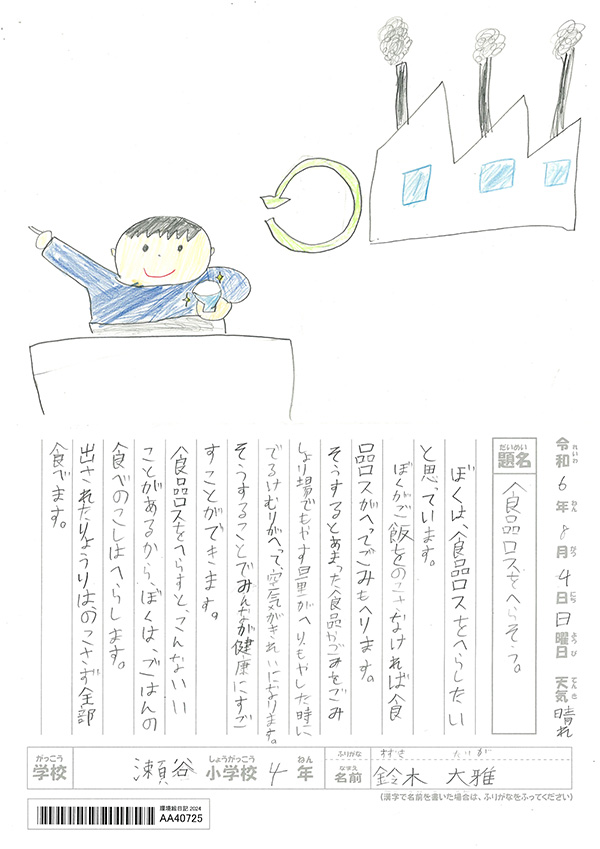 令和6年8月4日日曜日 天気晴れ
れいわ ねん がつ にち ようび てんき
だいめい
題名 食品ロスをへらそう。
ぼくは、食品ロスをへらしたい
と思っています。
ぼくがご飯をのこさなければ食
品ロスがへってごみもへります。
そうするとあまった食品やごみをごみ
しょり場でもやす量がへり、もやした時に
でるけむりがへって、空気がきれいになります。
そうすることでみんなが健康にすご
すことができます。
食品ロスをへらすと、こんないい
ことがあるから、ぼくは、ごはんの
食べのこしはへらします。
出されたりょうりは、のこさず全部
食べます。
がっこう しょうがっこう ねん
学校 瀬谷 小学校 4年
ふりがな すずき たいが
なまえ
名前 鈴木 大雅
(漢字で名前を書いた場合は、ふりがなをふってください)
環境絵日記 2024
AA40725